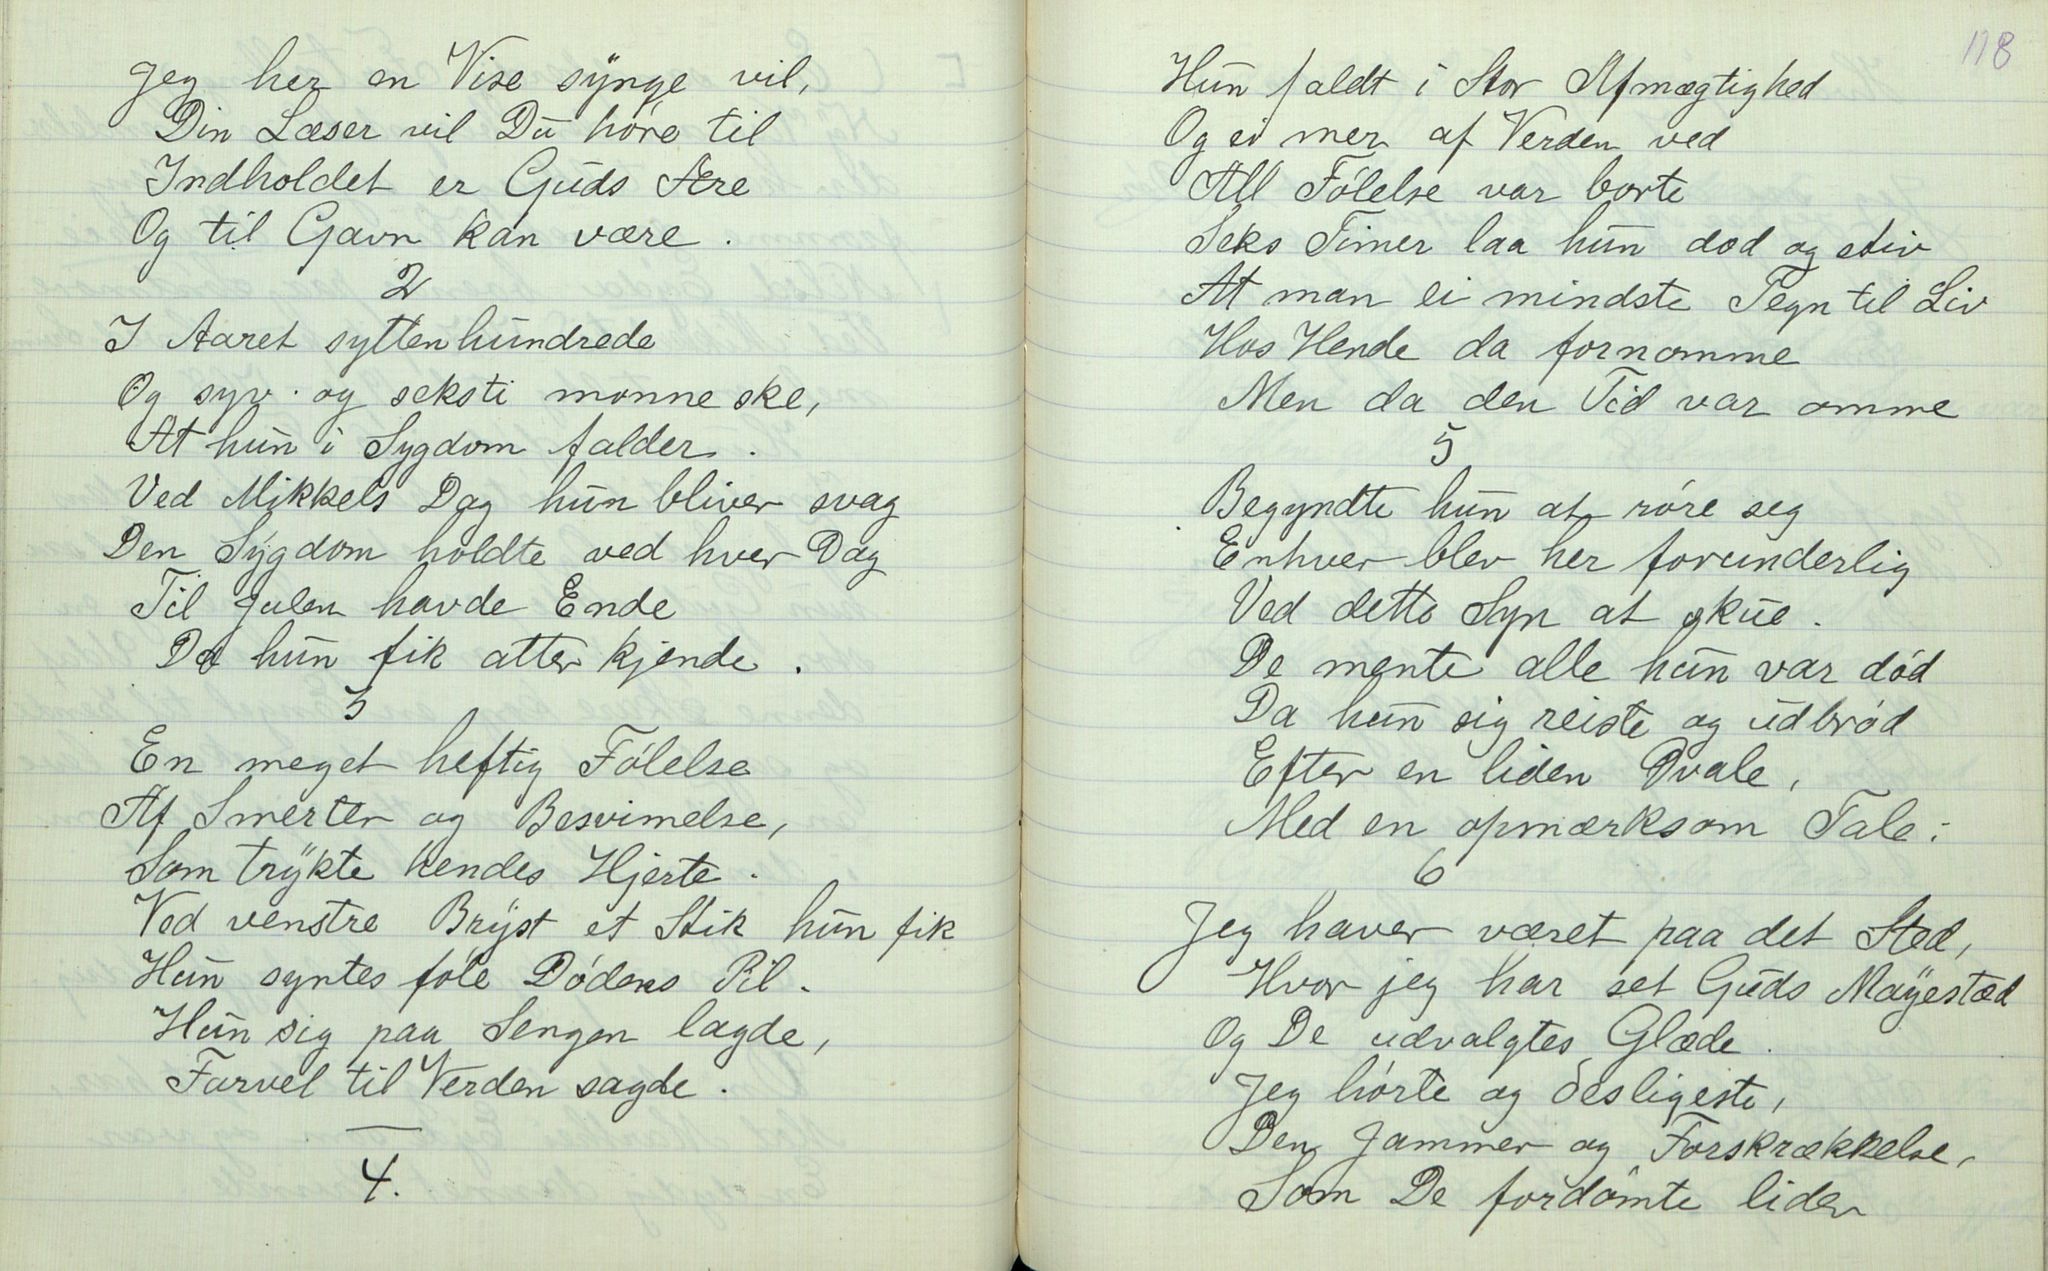 Jeg her en Vise synge vil,
Din Læser vil Du høre til
Indholdet er Guds Ære
Og til Gavn kan være.
2
I Aaret syttenhundrede
Og syv og seksti monne ske,
At hun i Sygdom falder.
Ved Mikkels Dag hun bliver svag
Den Sygdom holdte ved hver Dag
Til Julen havde Ende
Da hun fik atter kjende.
3
En meget heftig Følelse
Af Smerter og Besvimelse,
Som trykte hendes Hjerte.
Ved venstre Bryst et Stik hun fik
Hun syntes føle Dødens Pil.
Hun sig paa Sengen lagde,
Farvel til Verden sagde.
4.
118
Hun faldt i Stor Afmægtighed
Og ei mer af Verden ved
All Følelse var borte
Seks Timer laa hun dod og stiv
At man ei mindste Tegn til Liv
Hos Hende da fornomme
Men da den Tid var omme
5
Begyndte hun at røre seg
Enhver blev her forunderlig
Ved dette Syn at skue.
De mente alle hun var død
Da hun sig reiste og udbrød
Efter en liden Dvale,
Med en opmærksom Tale:
6
Jeg haver været paa det Sted,
Hvor jeg har set Guds Mayestæd
Og De udvalgtes Glæde.
Jeg hørte og desligeste,
Den Jammer og Forskrækkelse,
Som De fordømte lider